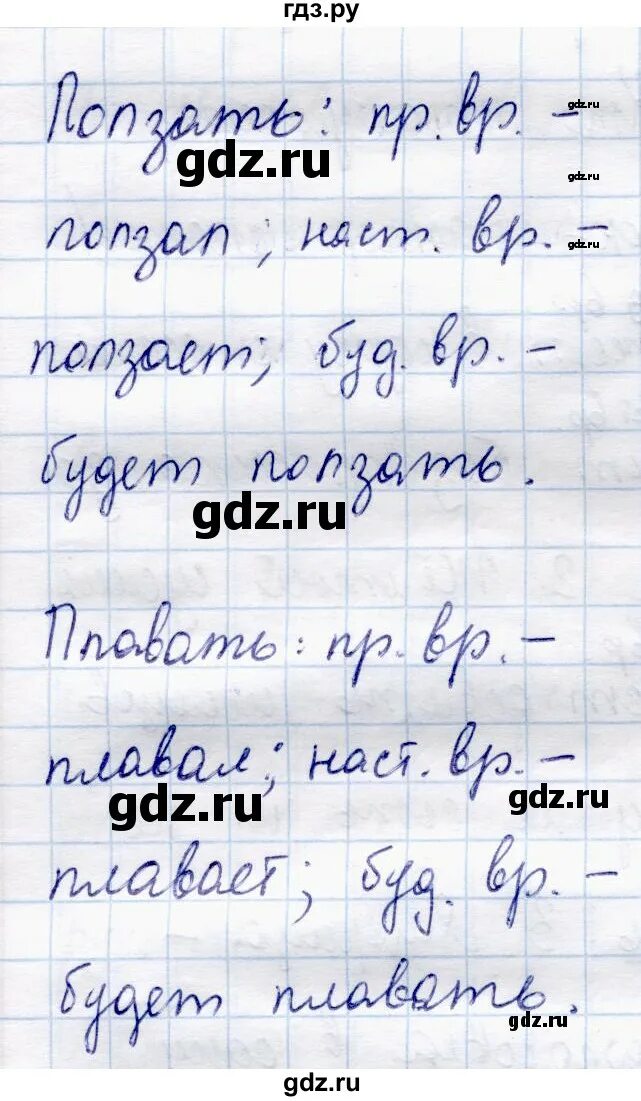 гдз.ру
Ползать: пр. вр. –
gdz.ru
gdz.ru
gdz.ru
ползал; наст. вр. –
gdz.ru
ползает; буд. вр. –
будет ползать.
gdz.ru
Плавать: пр. вр. –
плавал; наст. вр. –
gdz.ru
gdz.ru
плавает; буд. вр. –
будет плавать.
gdz.ru
gdz.ru